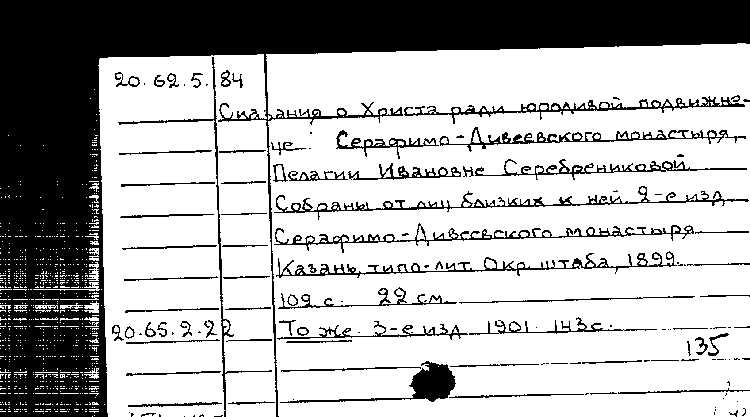 20.62.5.84
Сказания о Христа ради юродивой подвижни-
це Серафимо-Дивеевского монастыря,
Пелагии Ивановне Серебрениковой.
Собраны от лиц, близких к ней. 2-е изд.
Серафимо-Дивеевского монастыря.
Казань, типо-лит. Окр. штаба, 1899.
102 с. 22 см.
20.65.2.22 То же. 3-е изд. 1901. 143 с.
135